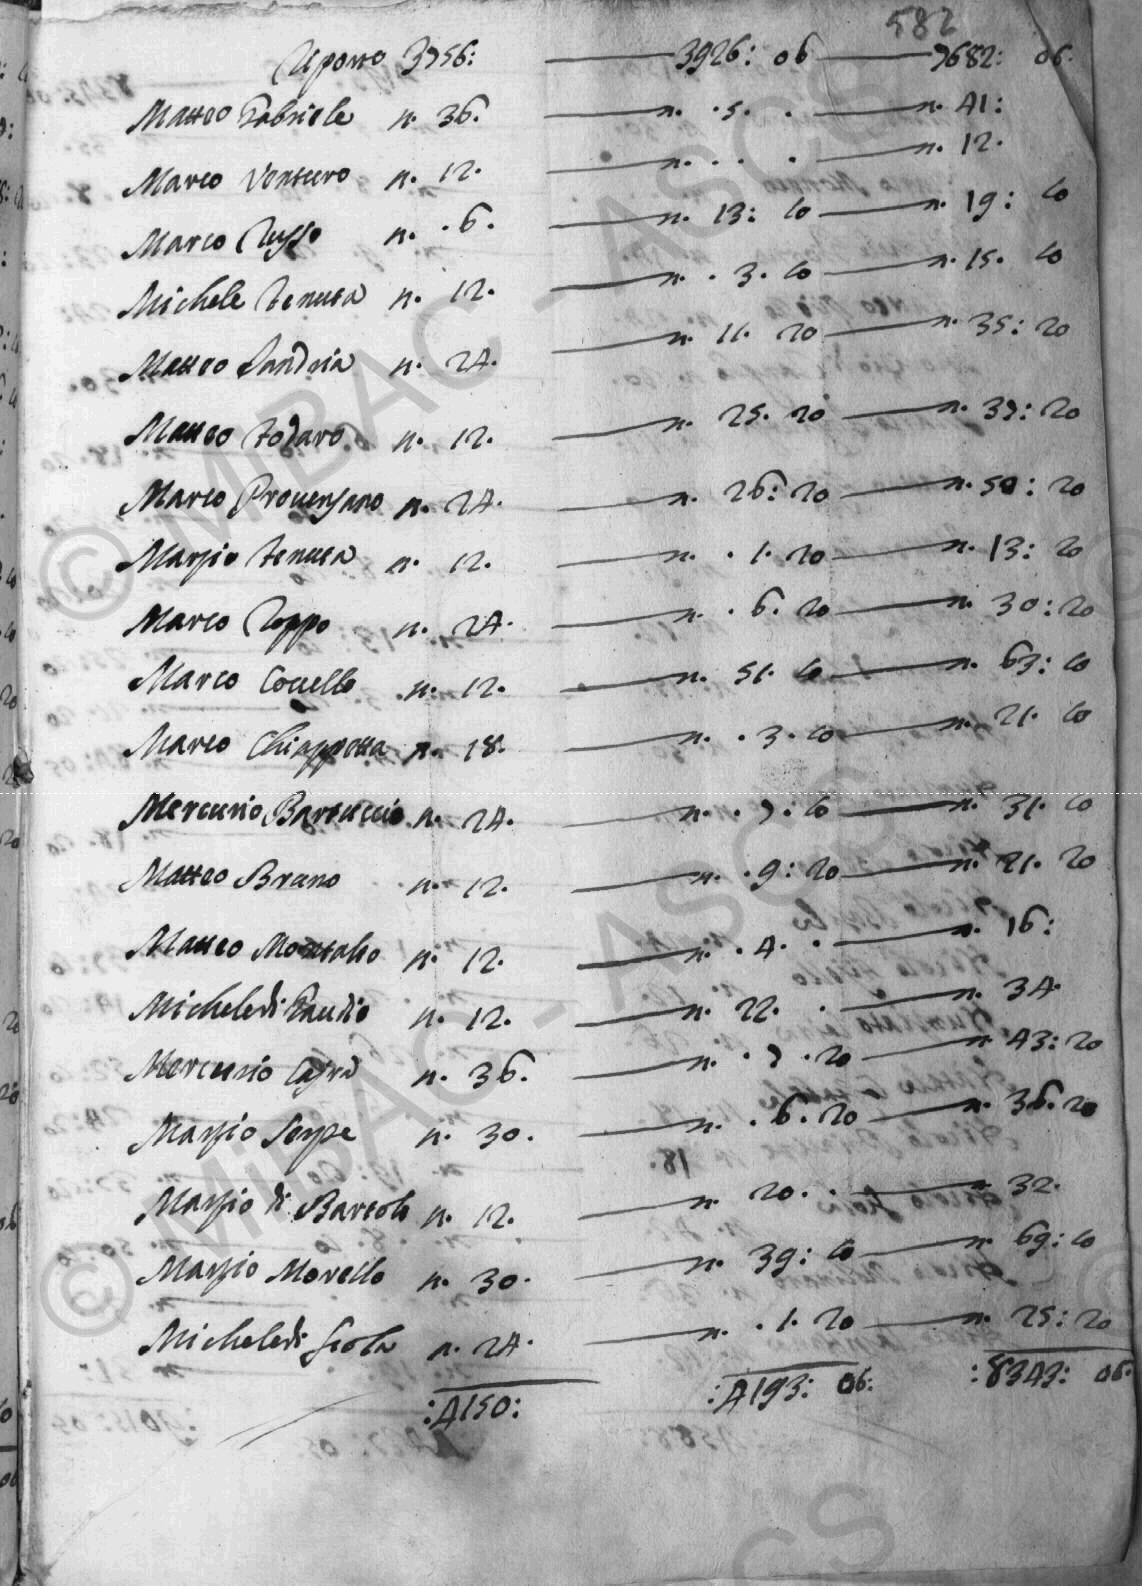 582
Riporto 3756: 3926: 06 7682: 06.
Matteo Gabriele n. 36. n. .5. . n. 41:
Marco Venturo n. 12. n. . . . n. 12.
Marco Russo n. .6. n. 13: 10 n. 19: 10
Michele Tenuta n. 12. n. .3. 10 n. 15. 10
Matteo Sandria n. 24. n. 11. 20 n. 35: 20
Matteo Todaro n. 12. n. 25. 20 n. 37: 20
Marco Provenzano n. 24. n. 26: 20 n. 50: 20
Marzio Tenuta n. 12. n. .1. 20 n. 13: 20
Marco Roppo n. 24. n. .6. 20 n. 30: 20
Marco Covello n. 12. n. 51. 10 n. 63: 10
Marco Chiappetta n. 18. n. .3. 10 n. 21. 10
Mercurio Bartuccio n. 24. n. .7: 10 n. 31. 10
Matteo Bruno n. 12. n. .9: 20 n. 21. 20
Matteo Montalto n. 12. n. .4. . n. 16:
Michele di Gaudio n. 12. n. 22. . n. 34.
Mercurio n. 36. n. .7. 20 n. 43: 20
Marzio Serpe n. 30. n. .6. 20 n. 36. 20
Marzio di Bartolo n. 12. n. 20. . n. 32.
Marzio Morello n. 30. n. 39: 10 n. 69: 10
Michele di Giola n. 24. n. .1. 20 n. 25: 20
:4150: :4193: 06: :8343: 06.
© MiBAC - ASCS
© MiBAC - ASCS